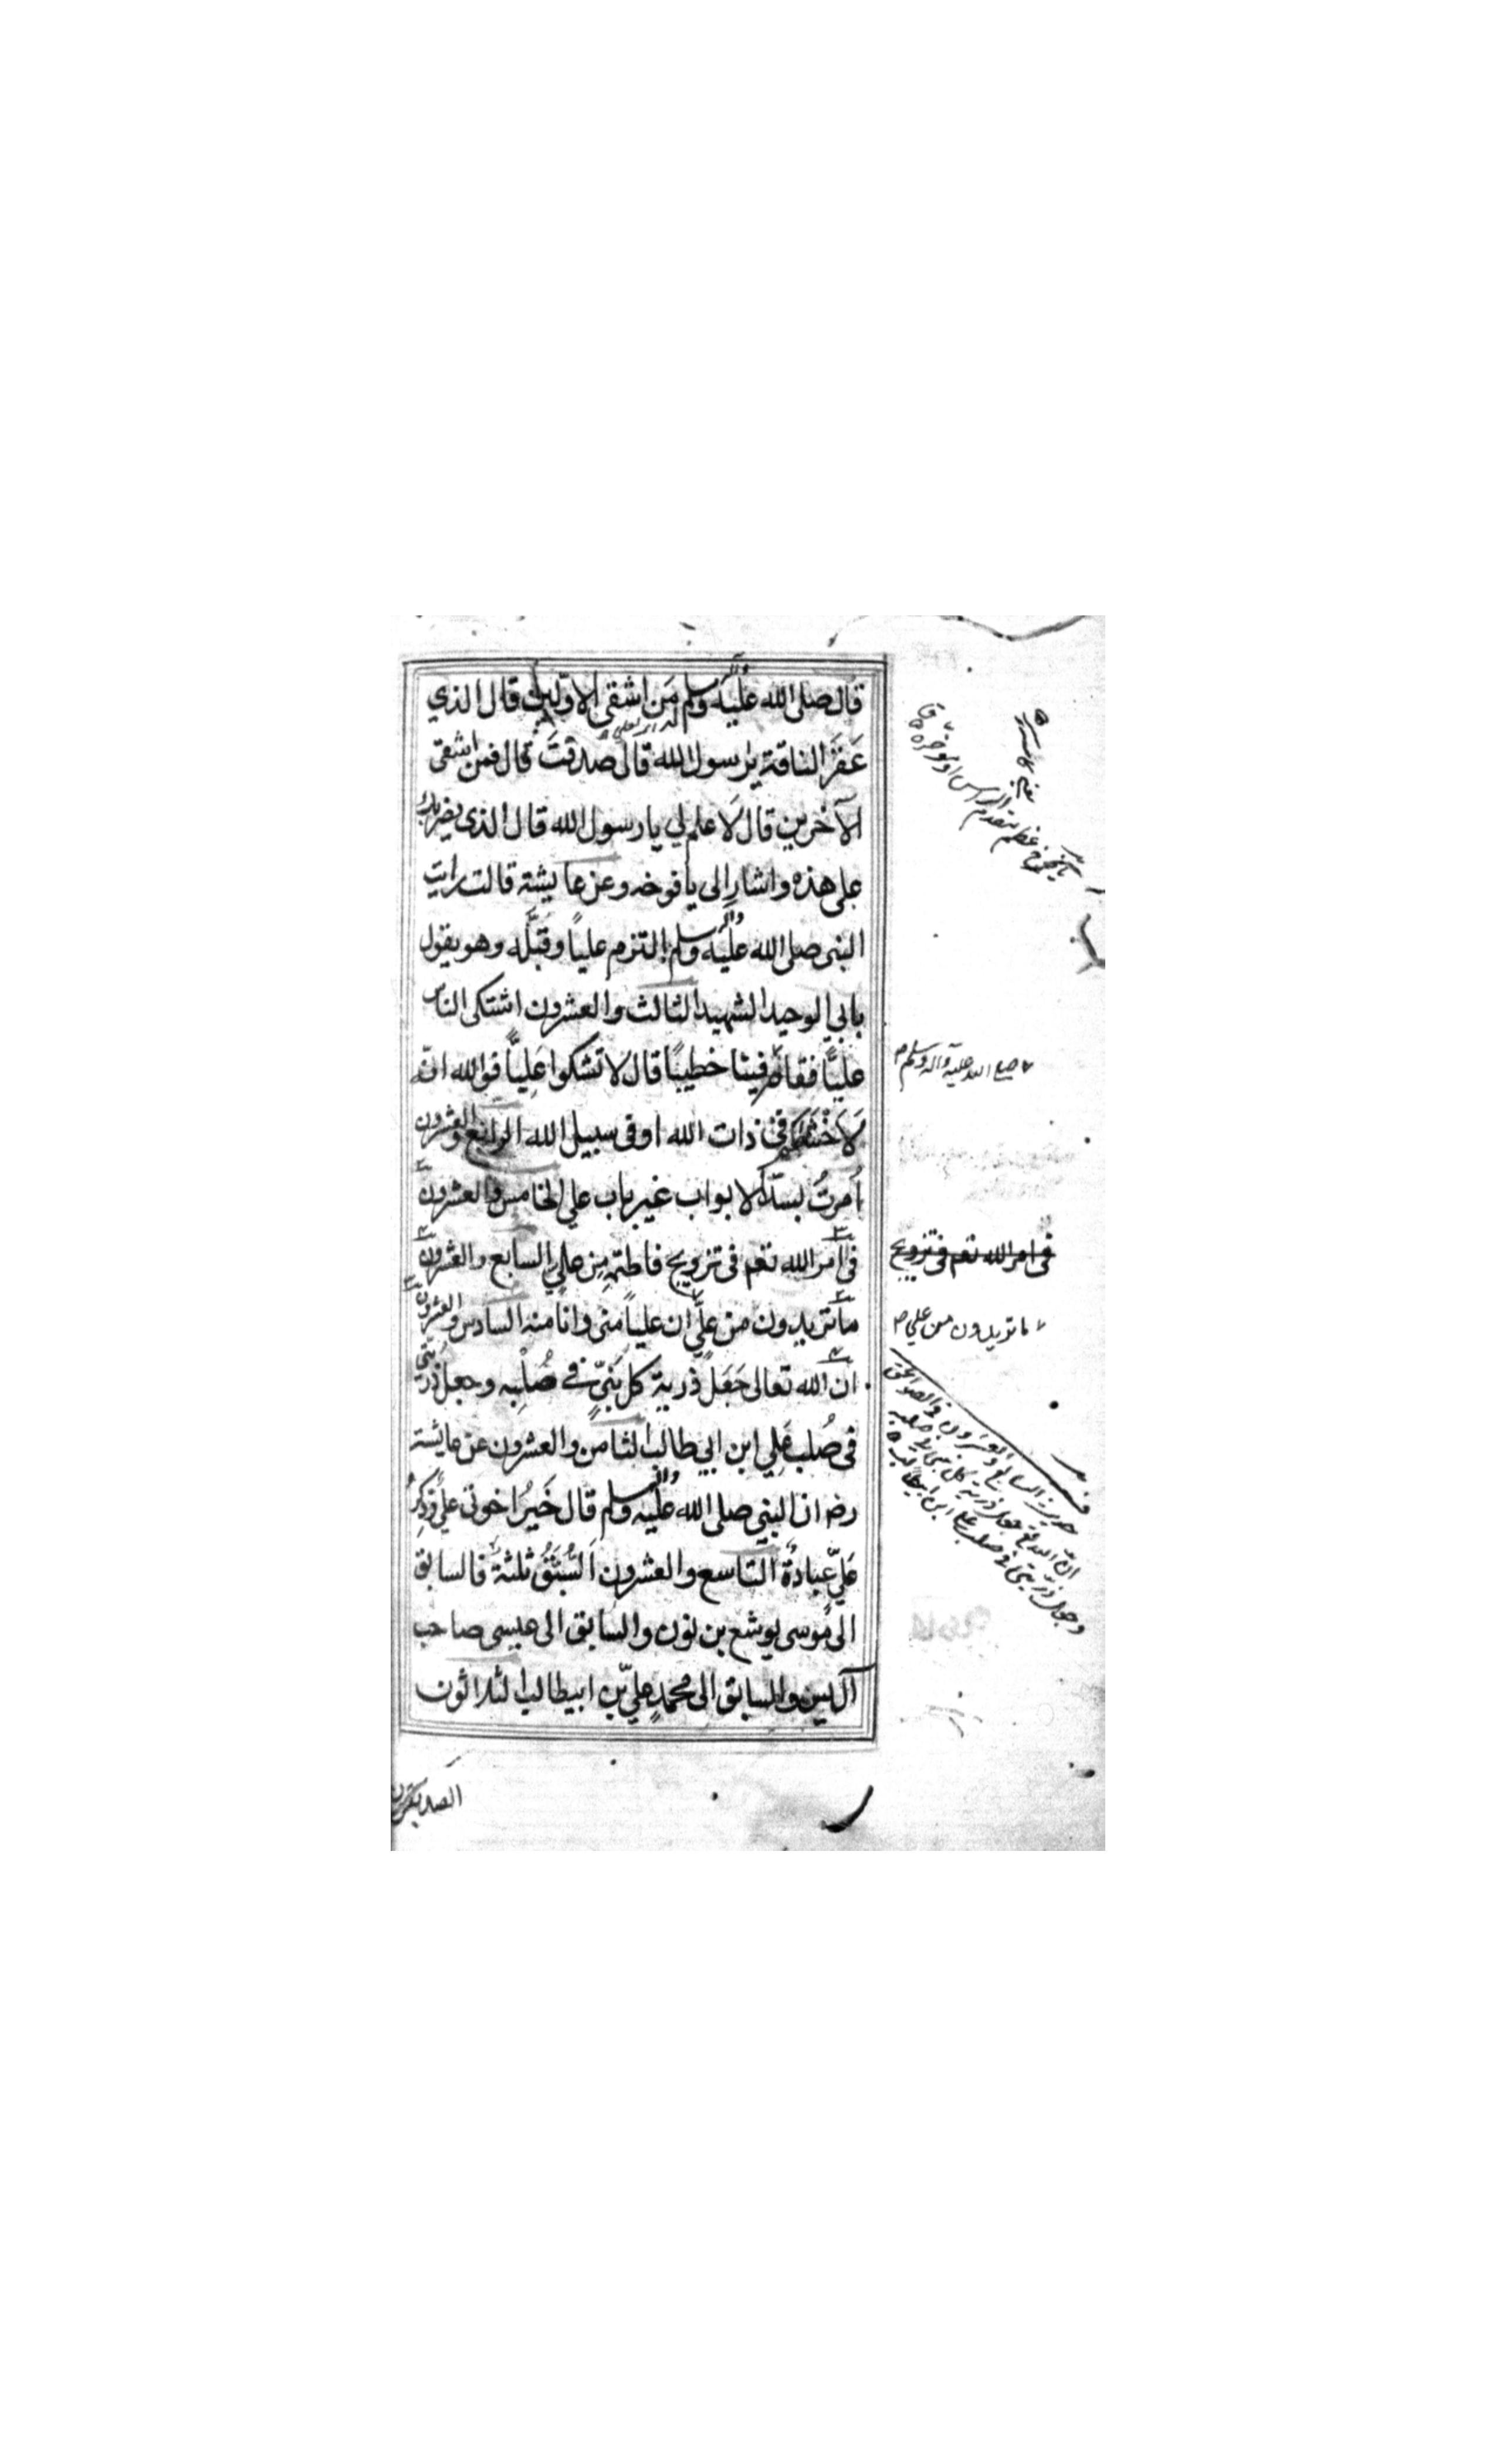 قال صلى الله عليه وآله وسلم من اشقى الاولين قال الذي
عقر الناقة يا رسول الله قال صدقت قال فمن اشقى
الآخرين قال لا علم لي يا رسول الله قال الذي يضربك
على هذه واشار الى يافوخه وعن عايشة قالت رايت
النبي صلى الله عليه وآله وسلم التزم علياً وقبّله وهو يقول
بابي الوحيد الشهيد الثالث والعشرون اشتكى الناس
عليّاً فقام فينا خطيبًا قال لا تشكوا عَلِيّاً فوالله انّه
في ذات الله او في سبيل الله الرابع والعشرون
اُمرتُ بسدّ الابواب غير باب علي الخامس والعشرون
في امر الله نعم في تزويج فاطمة من علي السابع والعشرون
ما تريدون من عليّ ان علياً مني وانا منه السادس والعشرون
ان الله تعالى جَعَلَ ذرية كل نبيّ في صُلبِه وجعل ذريّتي
في صُلب علي ابن ابي طالب الثامن والعشرون عن عايشة
رضه ان النبي صلى الله عليه وآله وسلم قال خَيرُ اخوتي عليّ وذِكرُ
عَليّ عبادةٌ التاسع والعشرون السُّبَّقُ ثلثة فالسابق
الى موسى يوشع بن نون والسابق الى عيسى صاحب
آل يس والسابق الى محمدٍ عليّ بن ابيطالب الثلاثون
صلى الله عليه وآله وسلم
في امر الله نعم في تزويج
ما تريدون من علي
حديث السابع والعشرون في الصواعق
ان الله جعل ذرية كل نبي في صلبه
وجعل ذريتي في صلب علي ابن ابيطالب
الصديقون